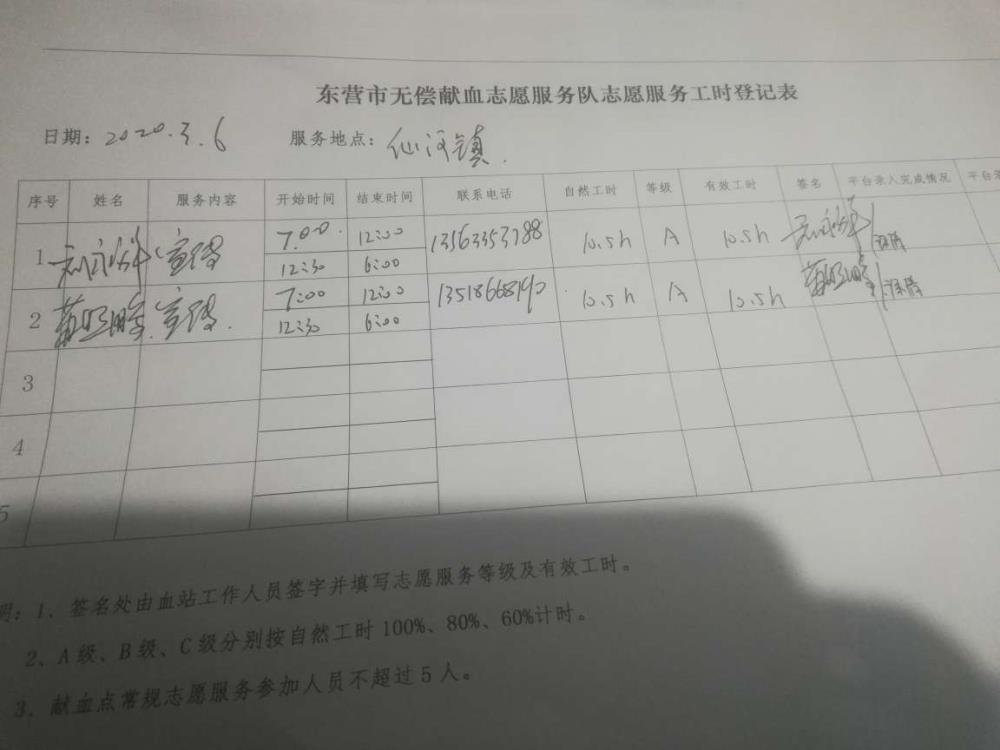 东营市无偿献血志愿服务队志愿服务工时登记表
日期：2020.3.6 服务地点：仙河镇.
序号 姓名 服务内容 开始时间 结束时间 联系电话 自然工时 等级 有效工时 签名 平台录入完成情况 平台录
1 宣传 7:00 12:00 13563353788 10.5h A 10.5h
12:30 6:00
2 宣传. 7:00 12:00 13518668190 10.5h A 10.5h
12:30 6:00
3
4
5
明：1、签名处由血站工作人员签字并填写志愿服务等级及有效工时。
2、A级、B级、C级分别按自然工时100%、80%、60%计时。
3、献血点常规志愿服务参加人员不超过5人。